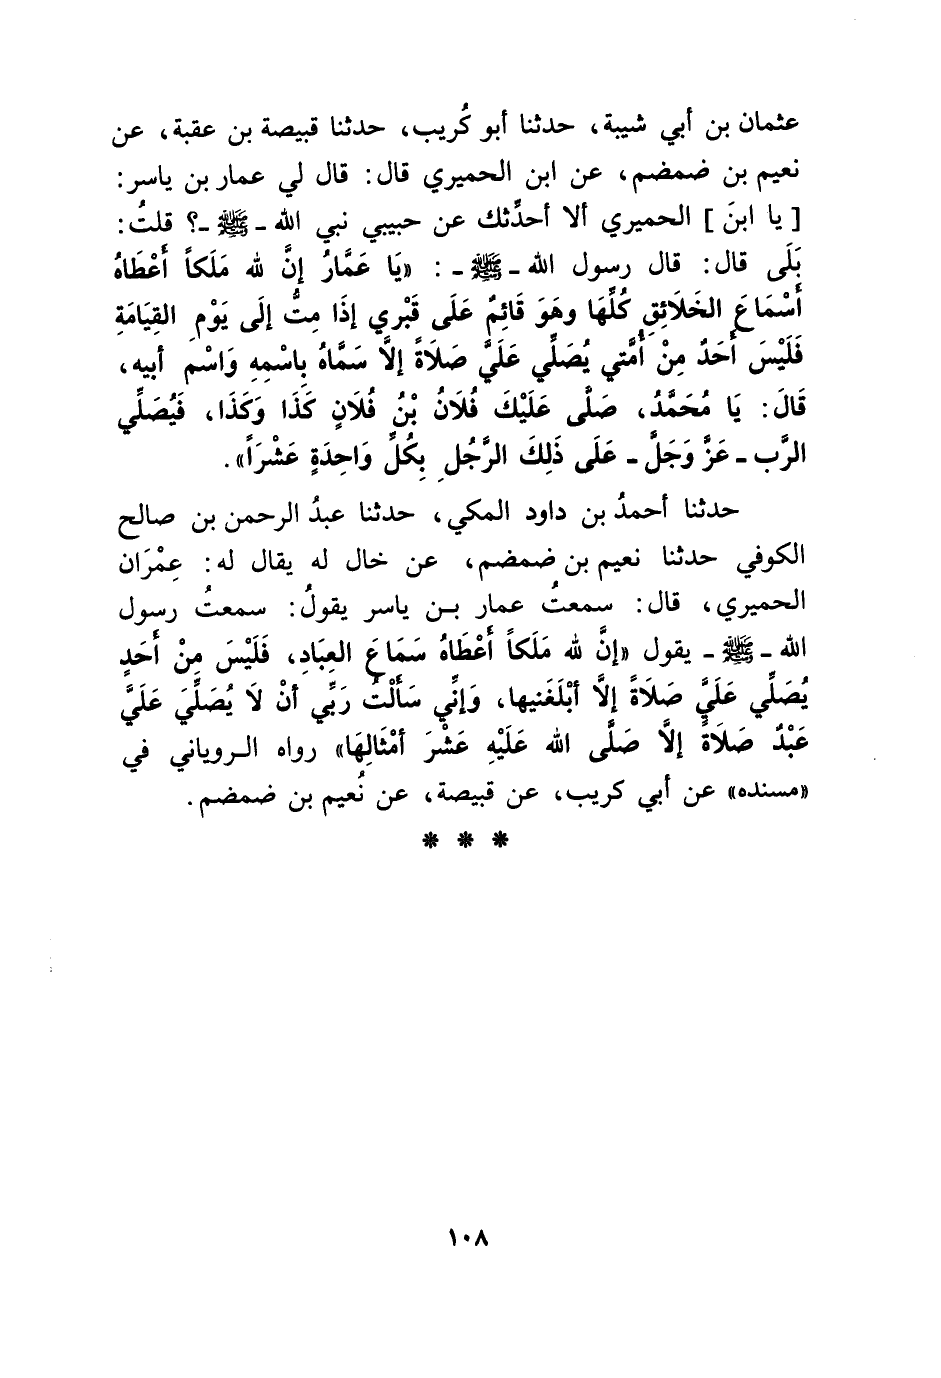 عثمان بن أبي شيبة، حدثنا أبو كُريب، حدثنا قبيصة بن عقبة، عن
نعيم بن ضمضم، عن ابن الحميري قال: قال لي عمار بن ياسر:
[ يا ابنَ ] الحميري ألا أحدِّثك عن حبيبي نبي الله ـ ﷺ ـ؟ قلتُ:
بَلَى قال: قال رسول الله ـ ﷺ ـ: «يَا عَمَّارُ إنَّ لله مَلَكاً أَعْطَاهُ
أَسْمَاعَ الخَلَائِقِ كُلِّهَا وهَوَ قَائِمٌ عَلَى قَبْرِي إذَا مِتُّ إلَى يَوْمِ القِيَامَةِ
فَلَيْسَ أَحَدٌ مِنْ أُمَّتي يُصَلِّي عَلَيَّ صَلَاةً إلَّا سَمَّاهُ بِاسْمِهِ وَاسْمِ أبيه،
قَالَ: يَا مُحَمَّدُ، صَلَّى عَلَيْكَ فُلَانُ بْنُ فُلَانٍ كَذَا وَكَذَا، فَيُصَلِّي
الرَّب ـ عَزَّ وَجَلَّ ـ عَلَى ذَلِكَ الرَّجُلِ بِكُلِّ وَاحِدَةٍ عَشْرَاً».
حدثنا أحمدُ بن داود المكي، حدثنا عبدُ الرحمن بن صالح
الكوفي حدثنا نعيم بن ضمضم، عن خال له يقال له: عِمْرَان
الحميري، قال: سمعتُ عمار بن ياسر يقولُ: سمعتُ رسول
الله ـ ﷺ ـ يقول «إنَّ لله مَلَكاً أَعْطَاهُ سَمَاعَ العِبَادِ، فَلَيْسَ مِنْ أَحَدٍ
يُصَلِّي عَلَيَّ صَلَاةً إلَّا أبْلَغَنيها، وَإنِّي سَأَلْتُ رَبِّي أنْ لَا يُصَلِّيَ عَلَيَّ
عَبْدٌ صَلَاةً إلَّا صَلَّى الله عَلَيْهِ عَشْرَ أمْثَالِهَا» رواه الروياني في
«مسنده» عن أبي كريب، عن قبيصة، عن نُعيم بن ضمضم.
* * *
١٠٨